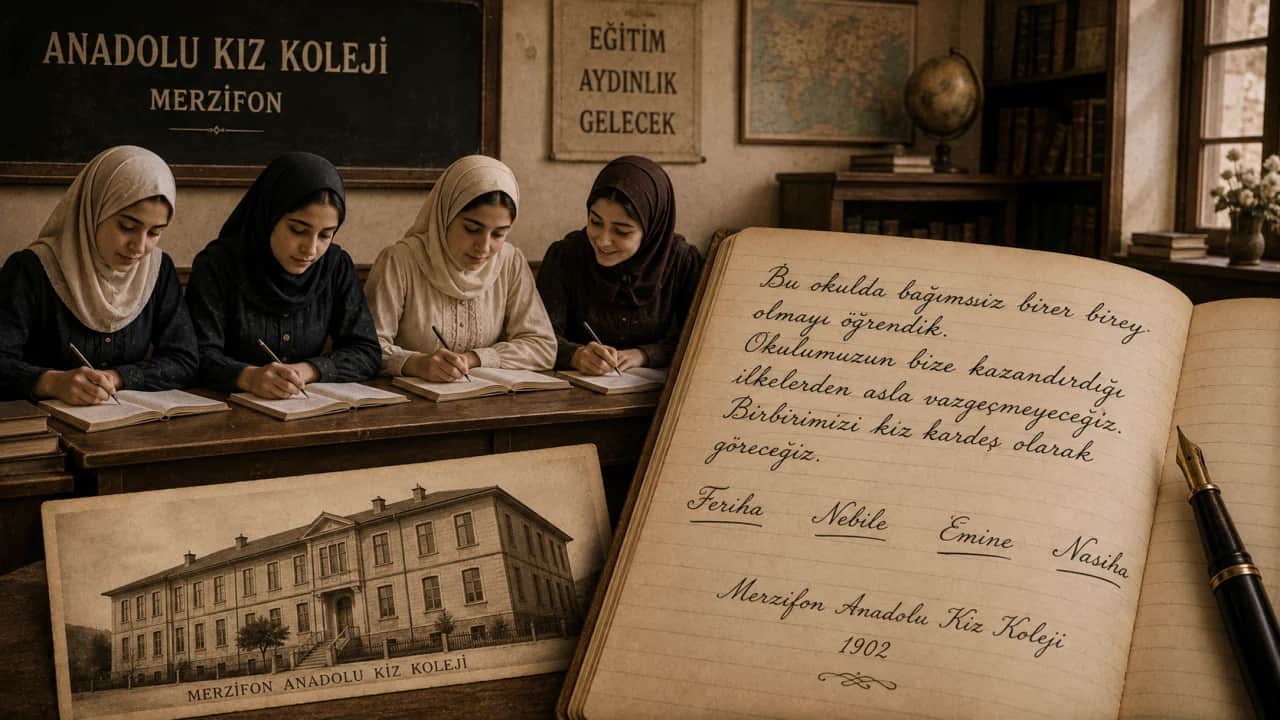 ANADOLU KIZ KOLEJİ
MERZİFON
EĞİTİM
AYDINLIK
GELECEK
Bu okulda bağımsız birer birey
olmayı öğrendik.
Okulumuzun bize kazandırdığı
ilkelerden asla vazgeçmeyeceğiz.
Birbirimizi kiz kardeş olarak
göreceğiz.
Feriha Nebile Emine Nasiha
Merzifon Anadolu Kiz Koleji
1902
MERZİFON ANADOLU KIZ KOLEJİ